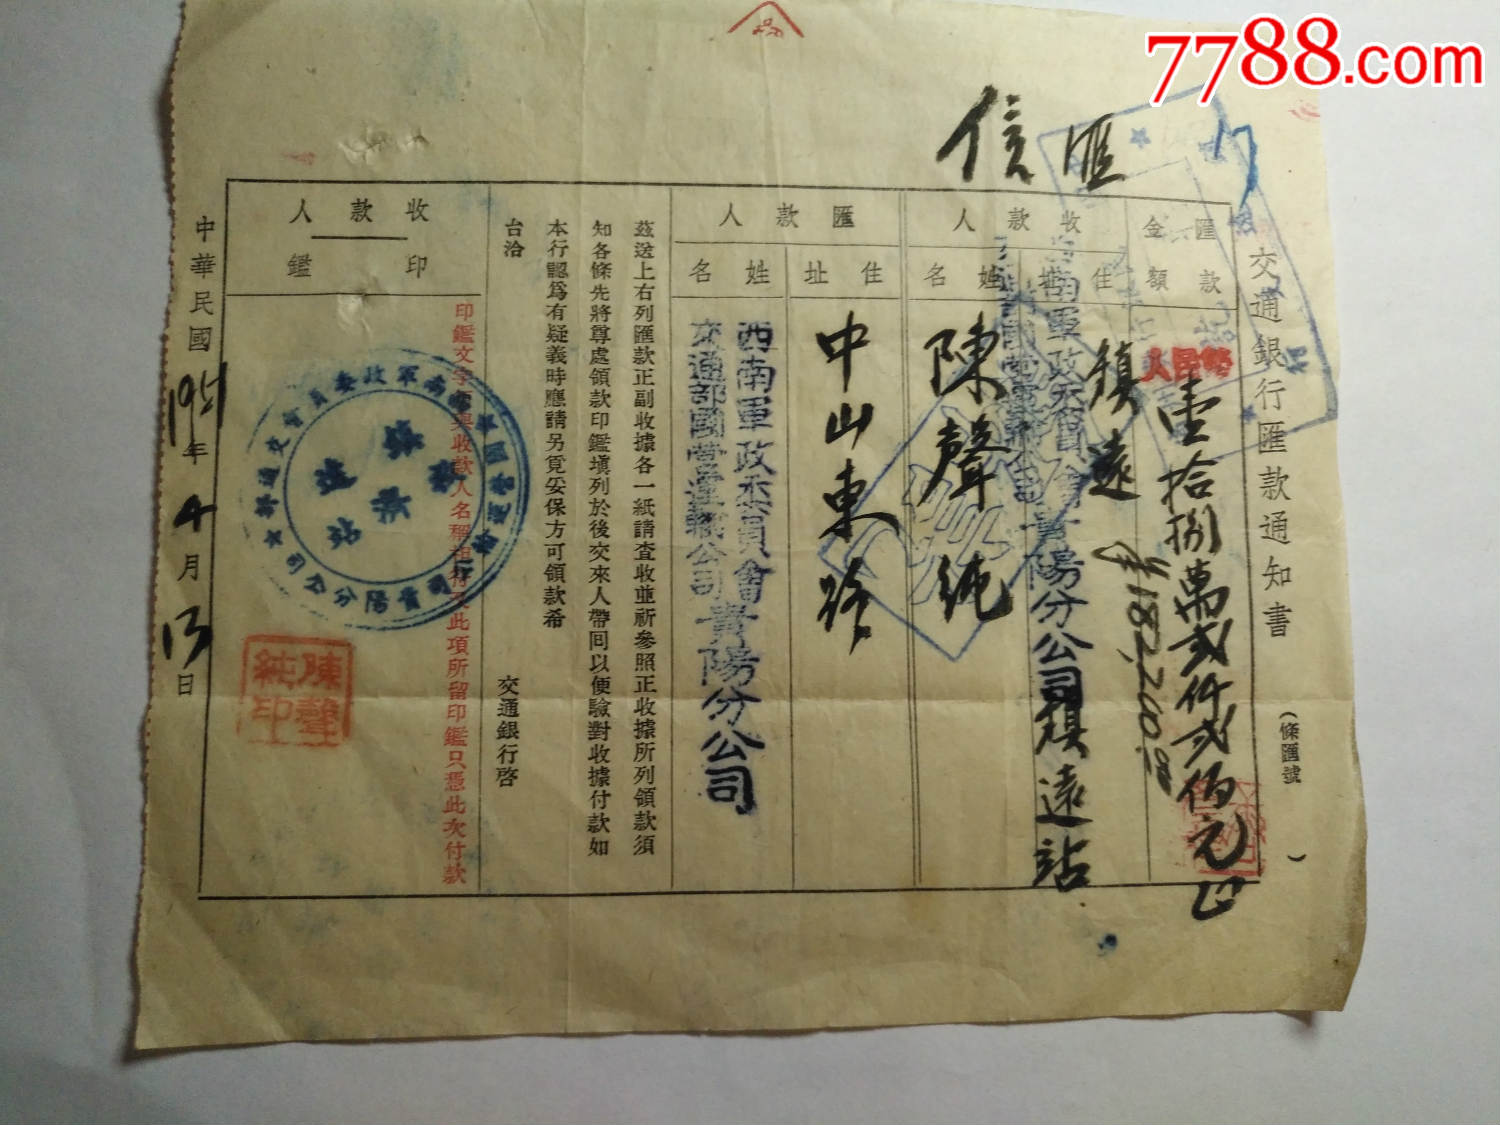 7788.com
信匯
交通銀行匯款通知書
(條匯號　　)
匯款金額
人民幣
壹拾捌萬貳仟貳佰元正
182,200.00
收款人
住址
鎮遠
貴陽分公司鎮遠站
姓名
陳聲純
匯款人
住址
中山東路
姓名
西南軍政委員會
交通部國營運輸公司
貴陽分公司
茲送上右列匯款正副收據各一紙請查收並祈參照正收據所列領款須
知各條先將尊處領款印鑑填列於後交來人帶回以便驗對收據付款如
本行認為有疑義時應請另覓妥保方可領款希
台洽
交通銀行啓
收款人
印鑑
印鑑文字須與收款人名稱相符又此項所留印鑑只憑此次付款
陳聲純印
中華民國1951年4月13日